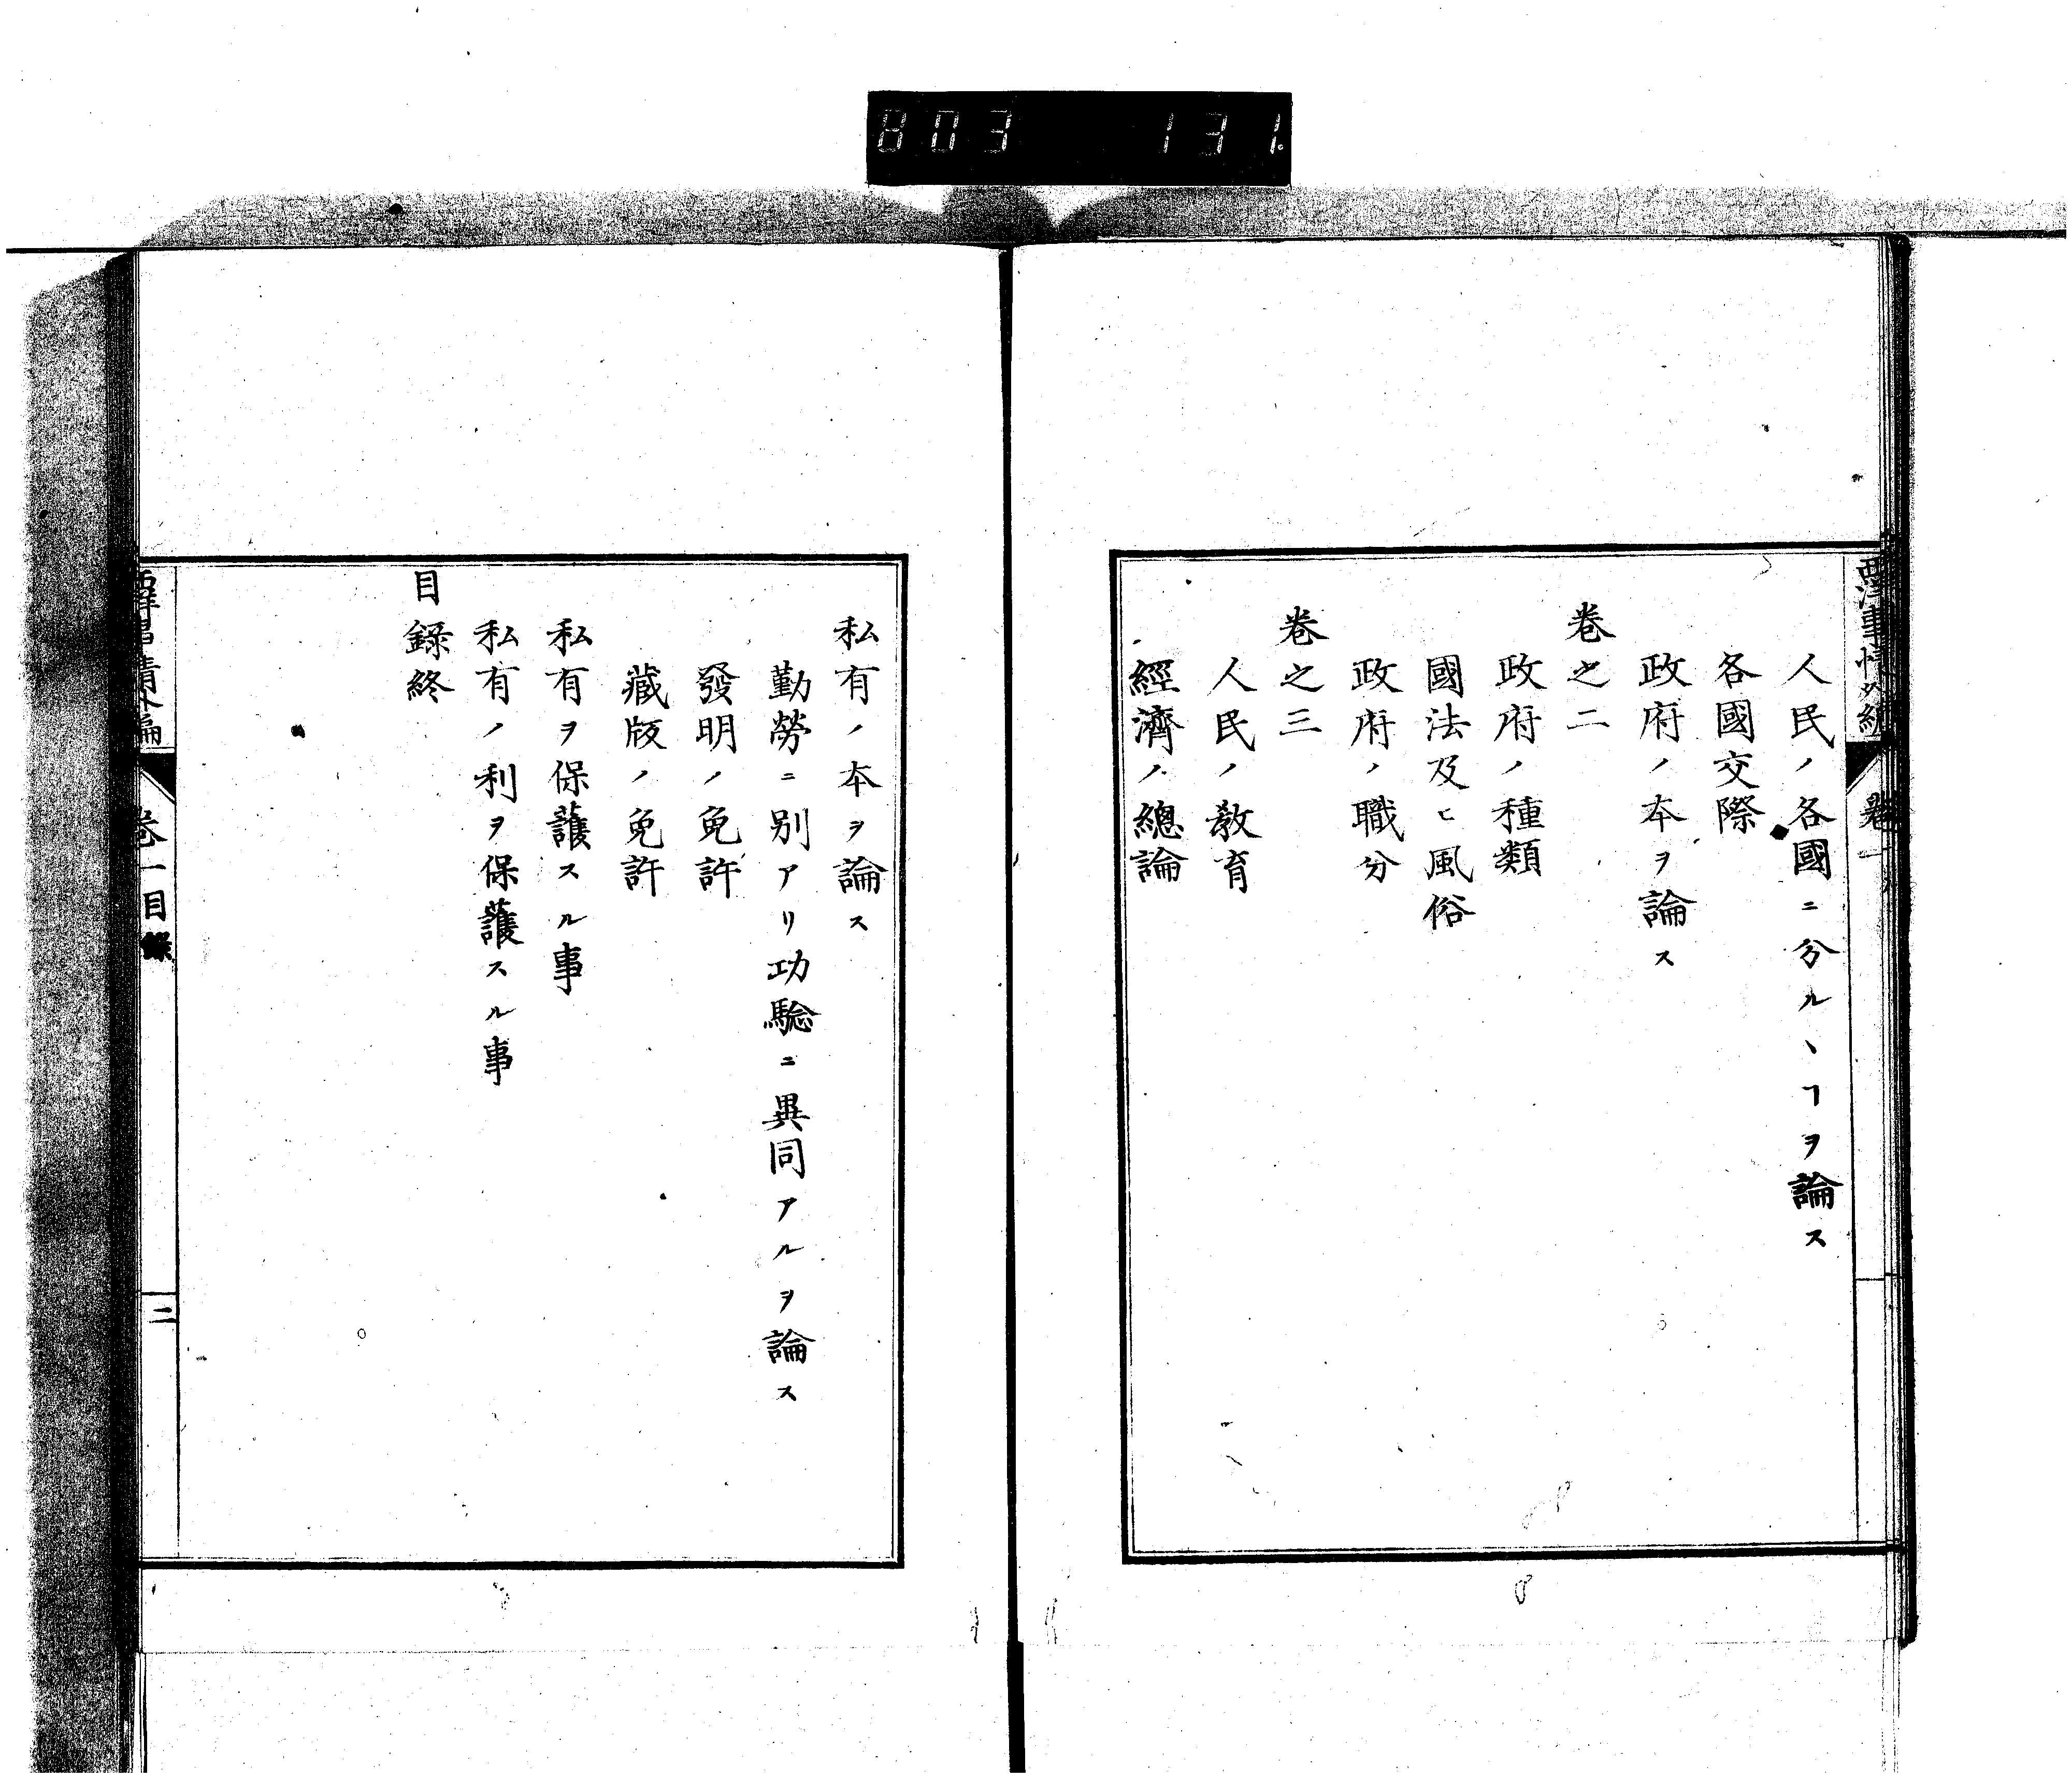 803 131
人民ノ各國ニ分ルヽヿヲ論ス
各國交際
政府ノ本ヲ論ス
卷之二
政府ノ種類
國法及ヒ風俗
政府ノ職分
卷之三
人民ノ教育
經濟ノ總論
私有ノ本ヲ論ス
勤勞ニ別アリ功驗ニ異同アルヲ論ス
發明ノ免許
藏版ノ免許
私有ヲ保護スル事
私有ノ利ヲ保護スル事
目錄終
卷一目錄
二